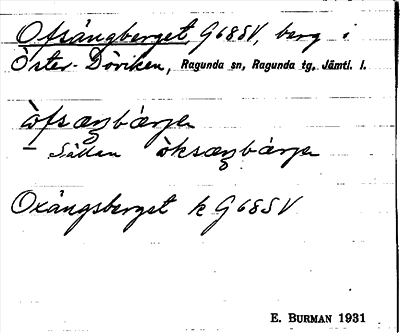 Ofsångberget, G68SV, berg i
Öster-Döviken, Ragunda sn, Ragunda tg, Jämtl. l.
òfsæŋbærjə
– Sällan òksæŋbærjə
Oxångsberget k G68SV
E. BURMAN 1931